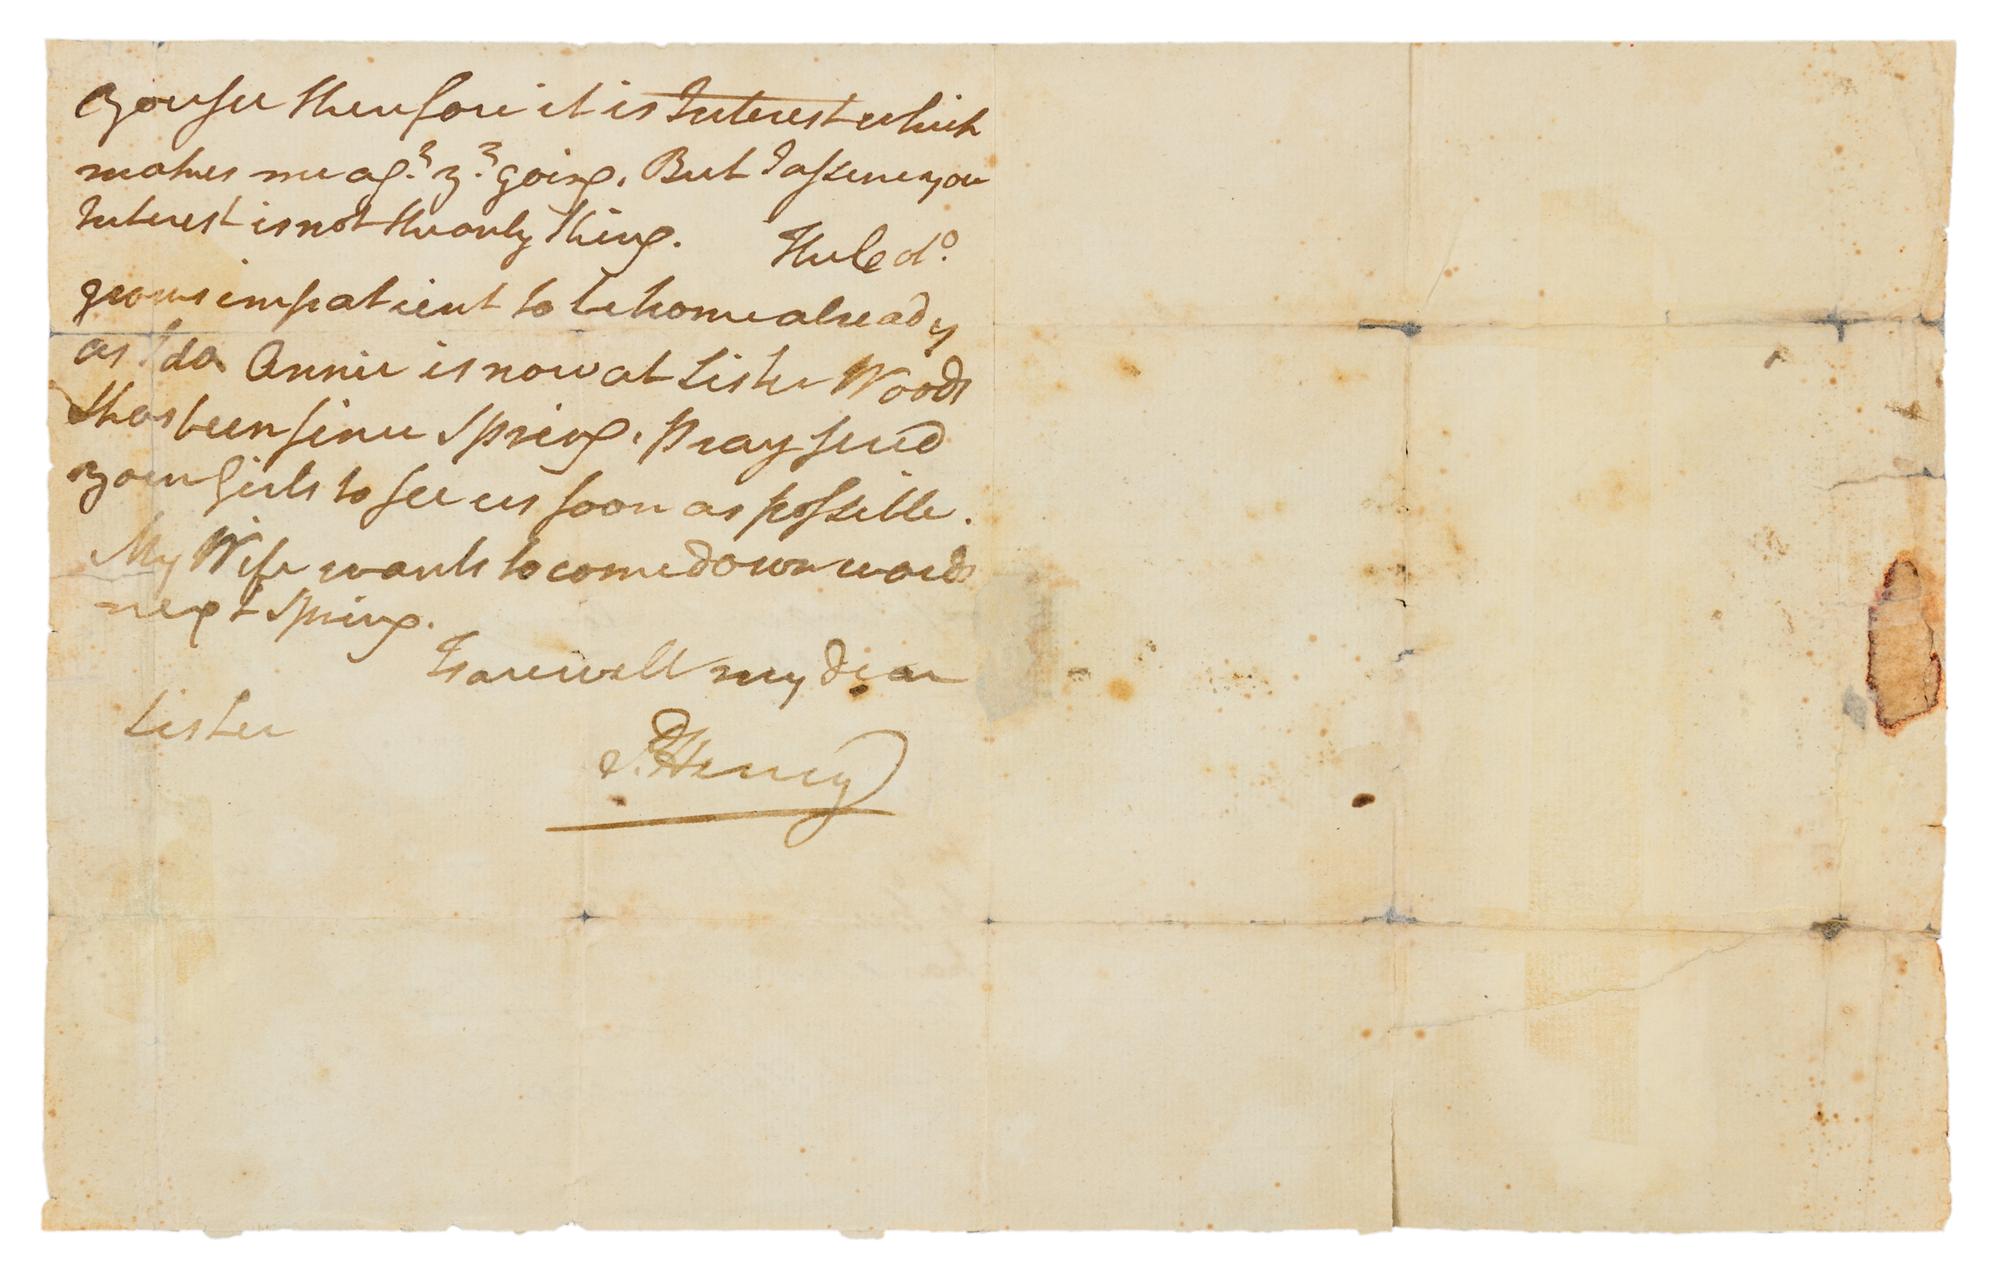 You see therefore it is Interest which
makes me agt. yr. going. But I assure you
Interest is not the only thing.
grows impatient to be home already
as I do. Annie is now at Sister Woods
& has been since Spring. Pray send
your Girls to see us soon as possible.
My Wife wants to come downwards
next Spring.
Farewell my dear
Sister
P. Henry